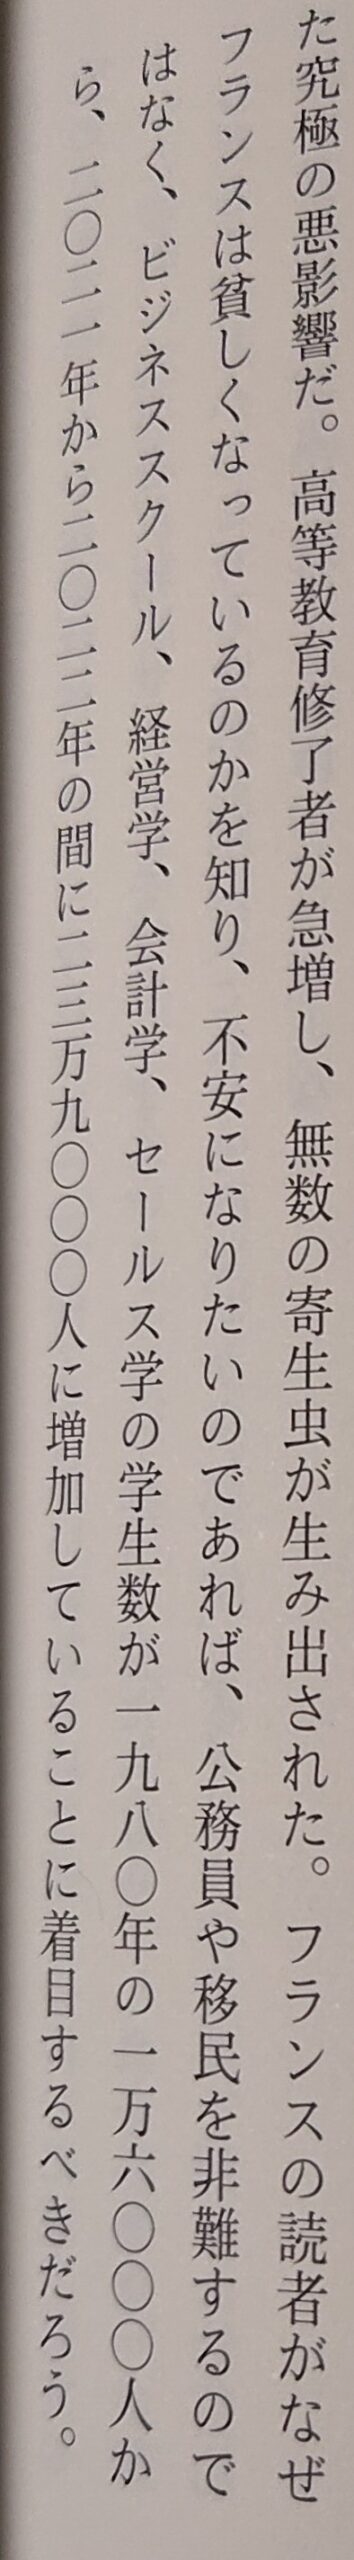 た究極の悪影響だ。高等教育修了者が急増し、無数の寄生虫が生み出された。フランスの読者がなぜ
フランスは貧しくなっているのかを知り、不安になりたいのであれば、公務員や移民を非難するので
はなく、ビジネススクール、経営学、会計学、セールス学の学生数が一九八〇年の一万六〇〇〇人か
ら、二〇二一年から二〇二二年の間に二三万九〇〇〇人に増加していることに着目するべきだろう。